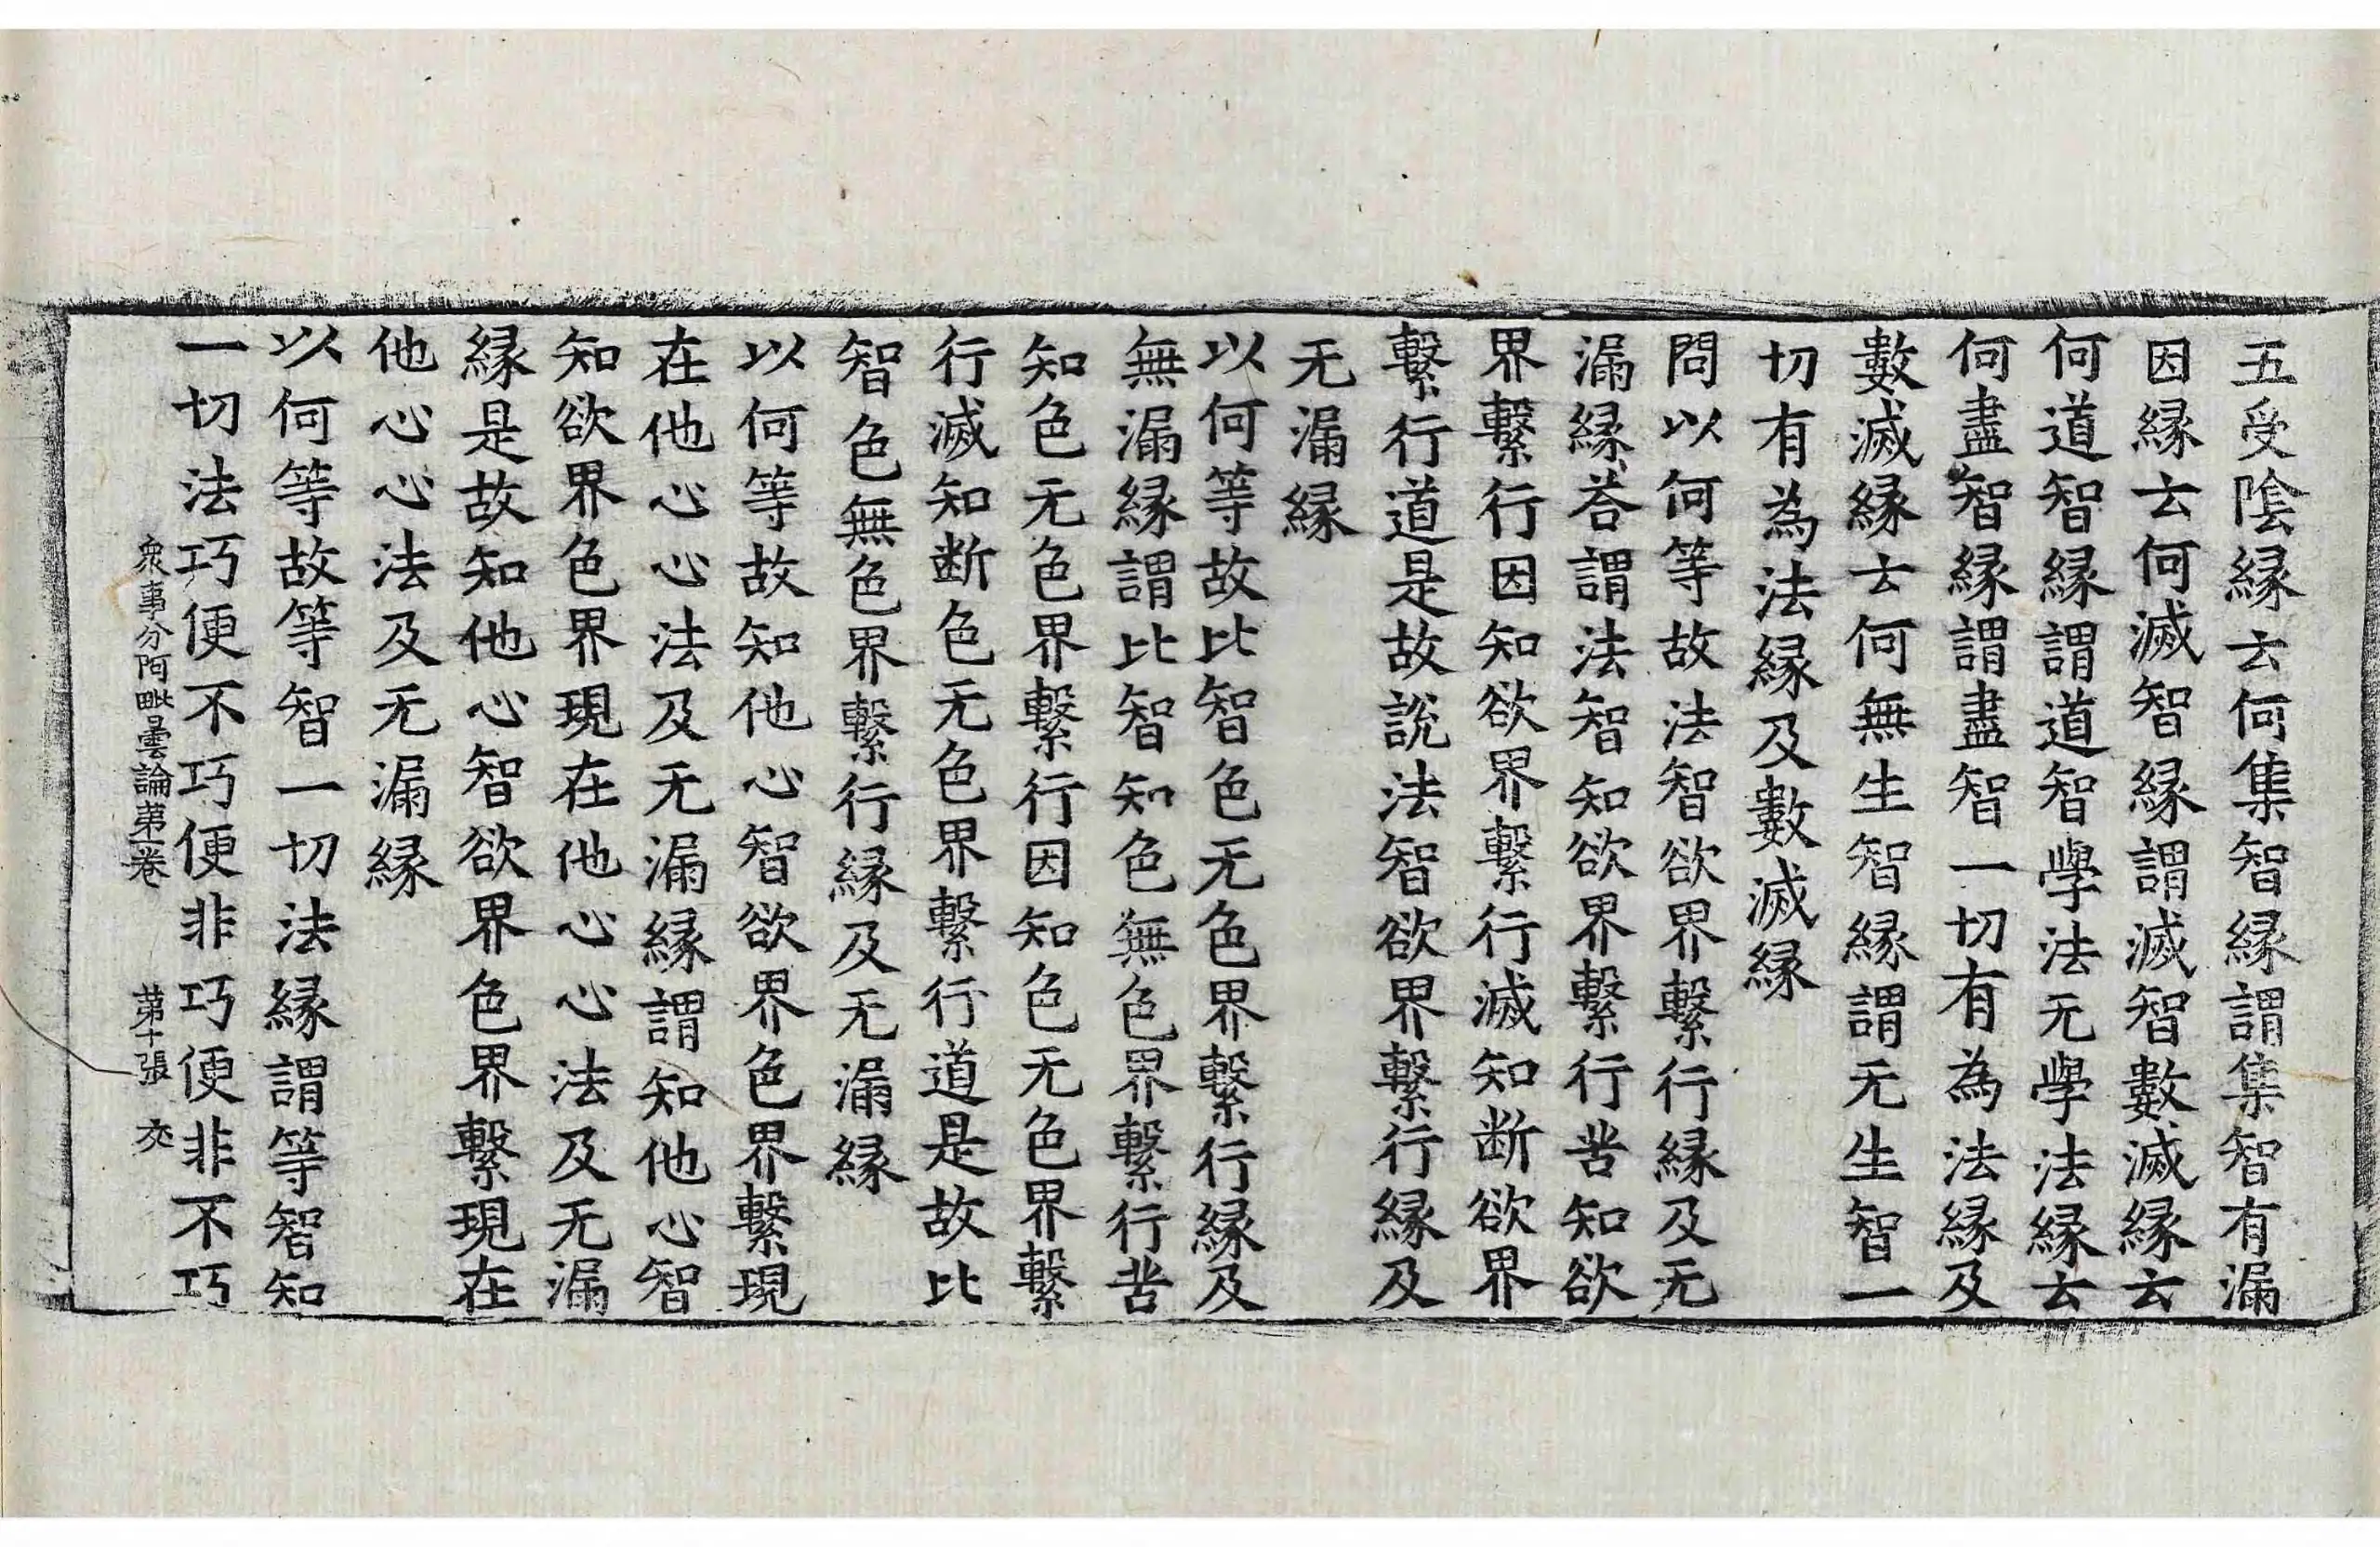 五受陰縁云何集智縁謂集智有漏
因縁云何滅智縁謂滅智數滅縁云
何道智縁謂道智學法无學法縁云
何盡智縁謂盡智一切有為法縁及
數滅縁云何無生智縁謂无生智一
切有為法縁及數滅縁
問以何等故法智欲界繫行縁及无
漏縁荅謂法智知欲界繫行苦知欲
界繫行因知欲界繫行滅知断欲界
繫行道是故説法智欲界繫行縁及
无漏縁
以何等故比智色无色界繫行縁及
無漏縁謂比智知色無色界繫行苦
知色无色界繫行因知色无色界繫
行滅知断色无色界繫行道是故比
智色無色界繫行縁及无漏縁
以何等故知他心智欲界色界繫現
在他心心法及无漏縁謂知他心智
知欲界色界現在他心心法及无漏
縁是故知他心智欲界色界繫現在
他心心法及无漏縁
以何等故等智一切法縁謂等智知
一切法巧便不巧便非巧便非不巧
衆事分阿毗曇論第一卷 第十張 交